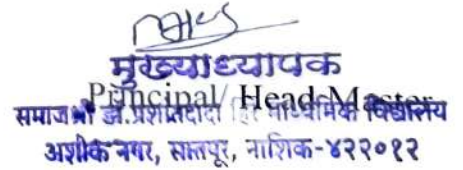 मुख्याध्यापक
Principal/ Head Master
समाजश्री डॉ.प्रशांतदादा हिरे माध्यमिक विद्यालय
अशोक नगर, सातपूर, नाशिक-४२२०१२